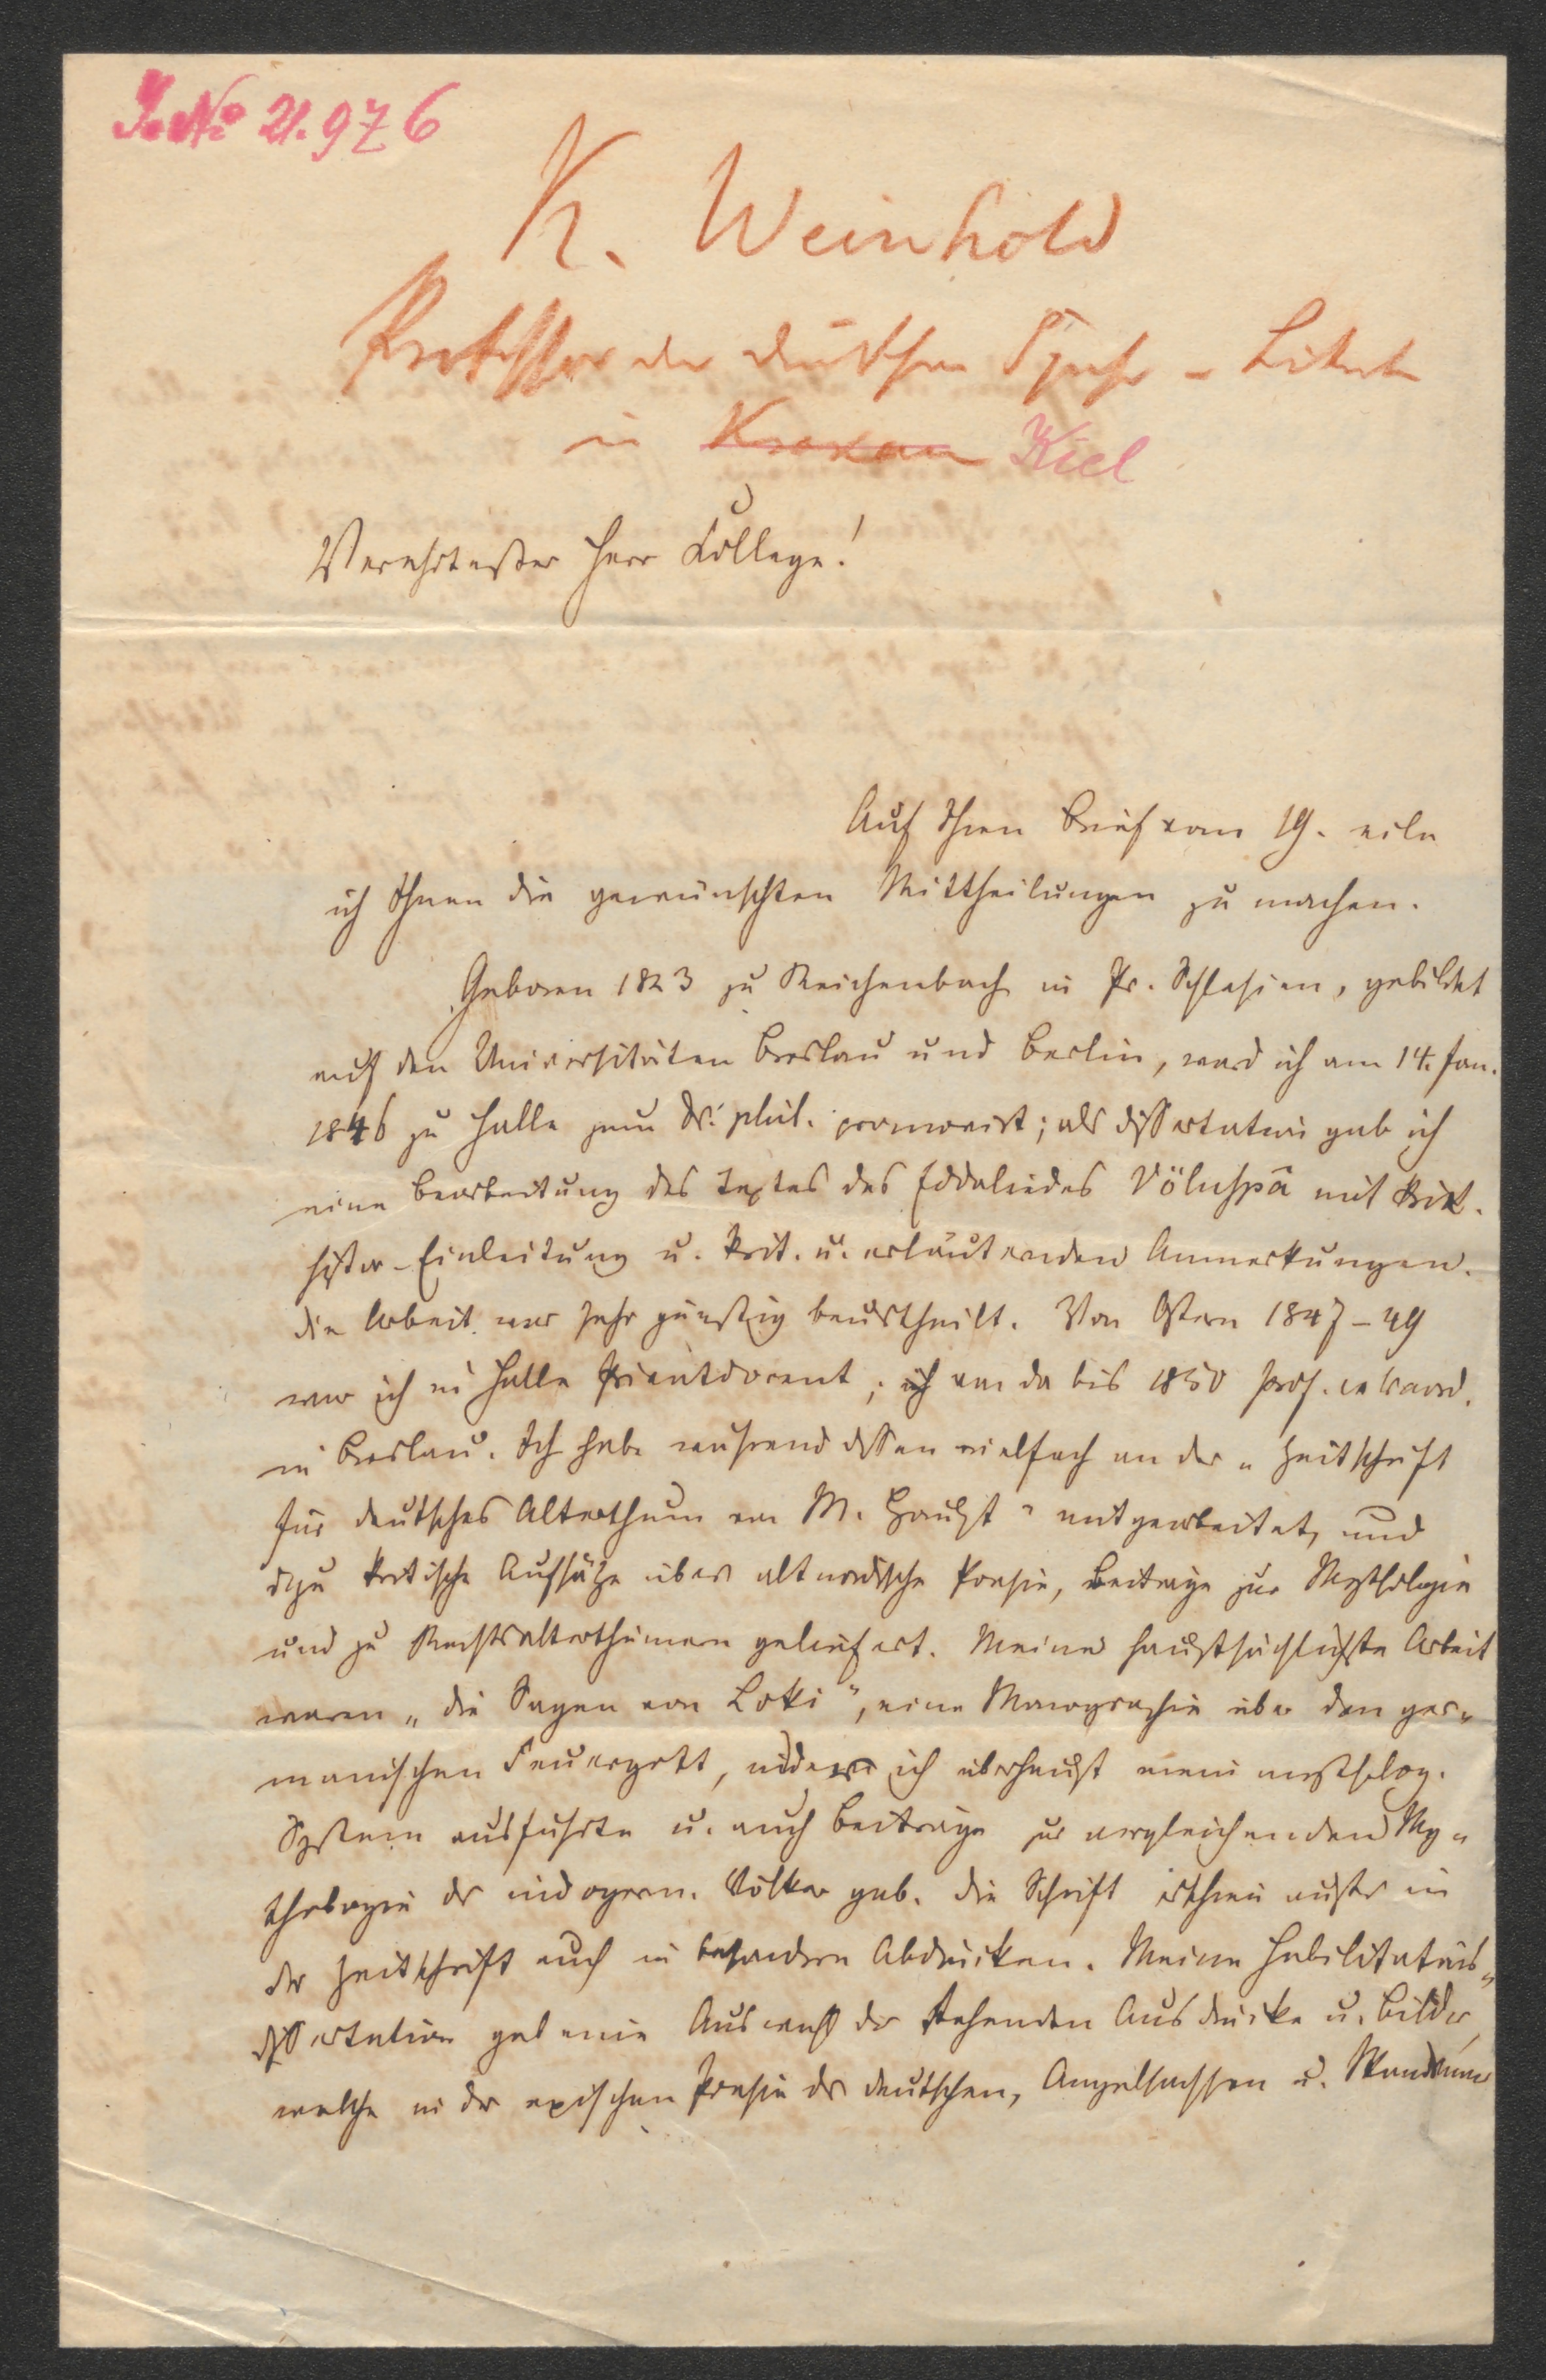 I. № 21.976
K. Weinhold
Professor der deutschen Sprache u Literat
in Krakau Kiel
Verehrtester Herr College!
Auf Ihren Brief vom 19. eile
ich Ihnen die gewünschten Mittheilungen zu machen.
Geboren 1823 zu Reichenbach in Pr. Schlesien, gebildet
auf den Universitäten Breslau und Berlin, ward ich am 14. Jan.
1846 zu Halle zum Dr. phil. promovirt; als Dissertation gab ich
eine Bearbeitung des Textes des Eddaliedes Völuspâ mit krit.
histor. Einleitung u. krit. u. erläuternden Anmerkungen.
Die Arbeit war sehr günstig beurtheilt. Von Ostern 1847-49
war ich in Halle Privatdocent, von da bis 1850 prof. extraord.
in Breslau. Ich habe während dessen vielfach an der „Zeitschrift
für deutsches Alterthum von M. Haupt" mitgearbeitet, und
dazu kritische Aufsätze über altnordische Poesie, Beiträge zur Mythologie
und zu Rechtsalterthümern geliefert. Meine hauptsächlichste Arbeit
waren „die Sagen von Loki", eine Monographie über den ger-
manischen Feuergott, in der ich überhaupt mein mytholog.
System ausführte u. auch Beiträge zur vergleichenden My-
thologie der indogerm. Völker gab. Die Schrift erschien außer in
der Zeitschrift auch in besondern Abdrücken. Meine Habilitations-
dissertation gab eine Auswahl der stehenden Ausdrücke u. Bilder,
welche in der epischen Poesie der Deutschen, Angelsachsen u. Skandinav